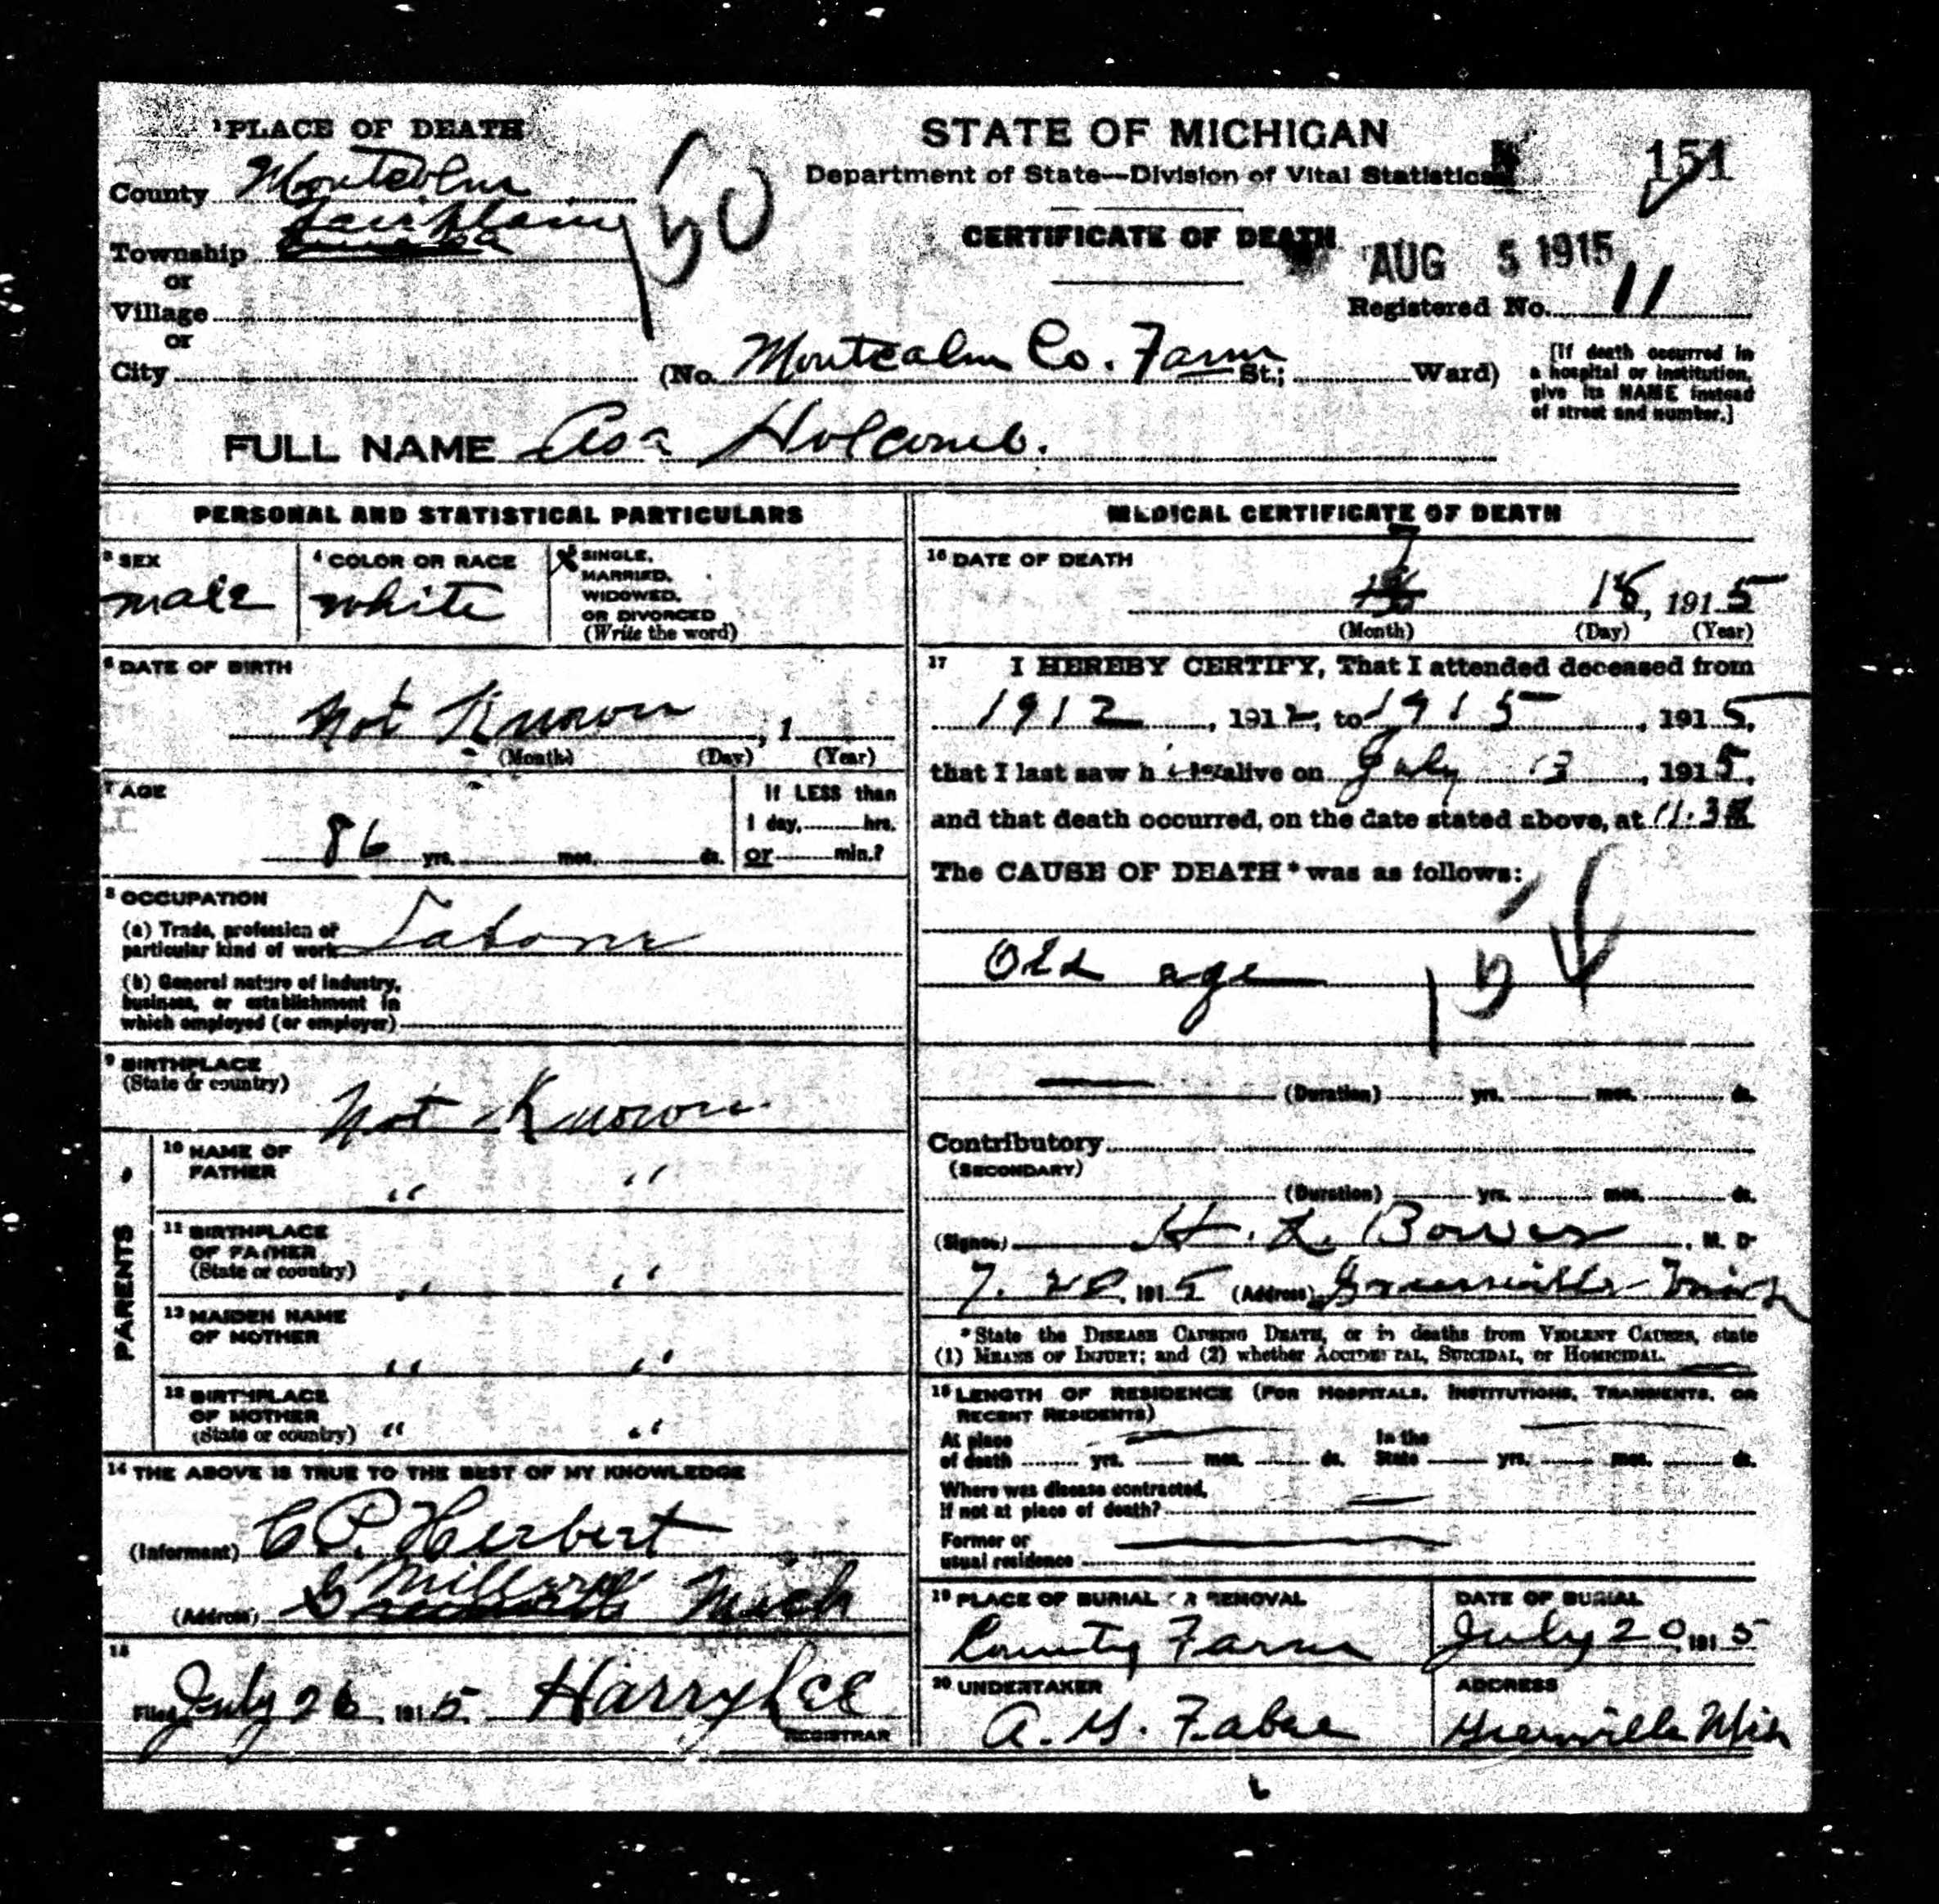 1 PLACE OF DEATH
County Montcalm
Fairplain
Township Eureka
or
Village
or
City
50
STATE OF MICHIGAN
Department of State—Division of Vital Statistics
151
CERTIFICATE OF DEATH
AUG 5 1915
Registered No. 11
(No. Montcalm Co. Farm St.; Ward)
[If death occurred in
a hospital or institution,
give its NAME instead
of street and number.]
FULL NAME Asa Holcomb.
PERSONAL AND STATISTICAL PARTICULARS
3 SEX
male
4 COLOR OR RACE
white
5 SINGLE,
MARRIED,
WIDOWED,
OR DIVORCED
(Write the word)
6 DATE OF BIRTH
Not Known, 1
(Month) (Day) (Year)
7 AGE
86 yrs. mos. ds.
If LESS than
1 day, hrs.
or min.?
8 OCCUPATION
(a) Trade, profession or
particular kind of work Labour
(b) General nature of industry,
business, or establishment in
which employed (or employer)
9 BIRTHPLACE
(State or country)
Not Known
PARENTS
10 NAME OF
FATHER
" "
11 BIRTHPLACE
OF FATHER
(State or country)
" "
12 MAIDEN NAME
OF MOTHER
" "
13 BIRTHPLACE
OF MOTHER
(State or country) " "
14 THE ABOVE IS TRUE TO THE BEST OF MY KNOWLEDGE
(Informant) C P. Herbert
(Address) Greenville Mich
15
Filed July 26, 1915. Harry Lee
REGISTRAR
MEDICAL CERTIFICATE OF DEATH
16 DATE OF DEATH
7
18, 1915
(Month) (Day) (Year)
17 I HEREBY CERTIFY, That I attended deceased from
1912, 1912, to 1915, 1915,
that I last saw him alive on July 13, 1915,
and that death occurred, on the date stated above, at 11.3
The CAUSE OF DEATH* was as follows:
Old age
(Duration) yrs. mos. ds.
Contributory
(SECONDARY)
(Duration) yrs. mos. ds.
(Signed) H. L. Bower, M. D.
7. 20, 1915 (Address) Greenville Mich
*State the DISEASE CAUSING DEATH, or in deaths from VIOLENT CAUSES, state
(1) MEANS OF INJURY; and (2) whether ACCIDENTAL, SUICIDAL, or HOMICIDAL.
18 LENGTH OF RESIDENCE (FOR HOSPITALS, INSTITUTIONS, TRANSIENTS, OR
RECENT RESIDENTS)
At place In the
of death yrs. mos. ds. State yrs. mos. ds.
Where was disease contracted,
If not at place of death?
Former or
usual residence
19 PLACE OF BURIAL OR REMOVAL
County Farm
DATE OF BURIAL
July 20, 1915
20 UNDERTAKER
A. G.
ADDRESS
Greenville Mich